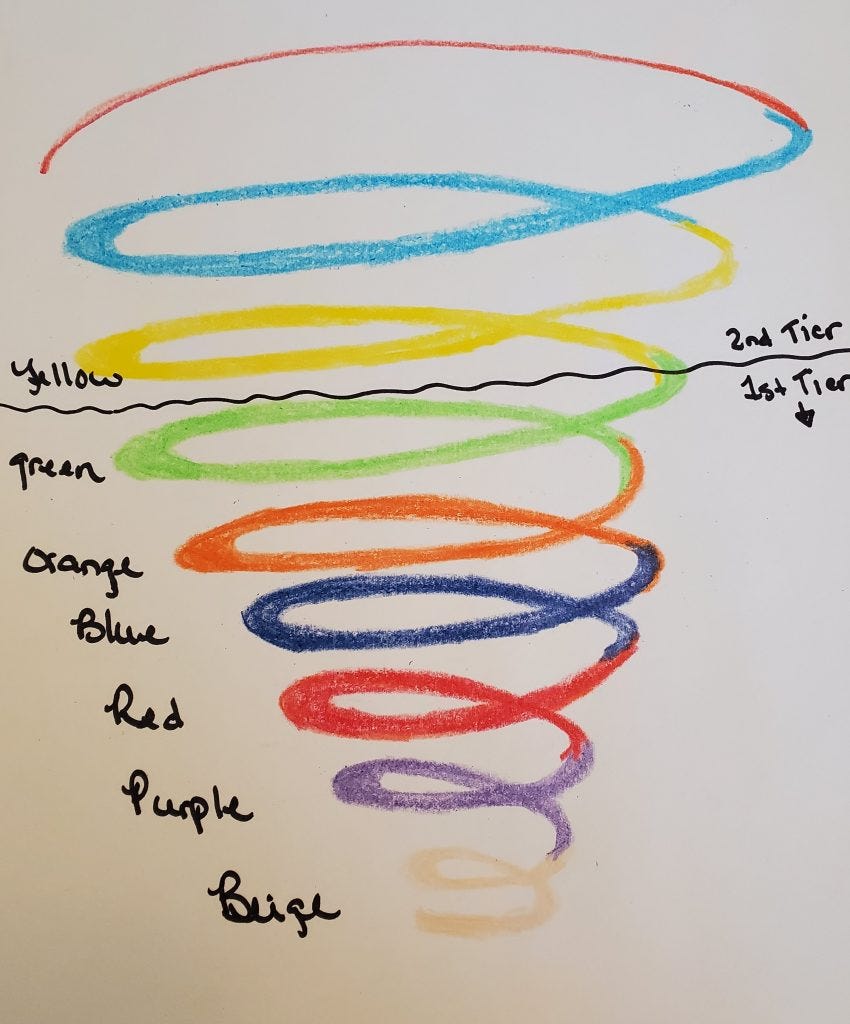 2nd Tier
1st Tier
Yellow
green
Orange
Blue
Red
Purple
Beige